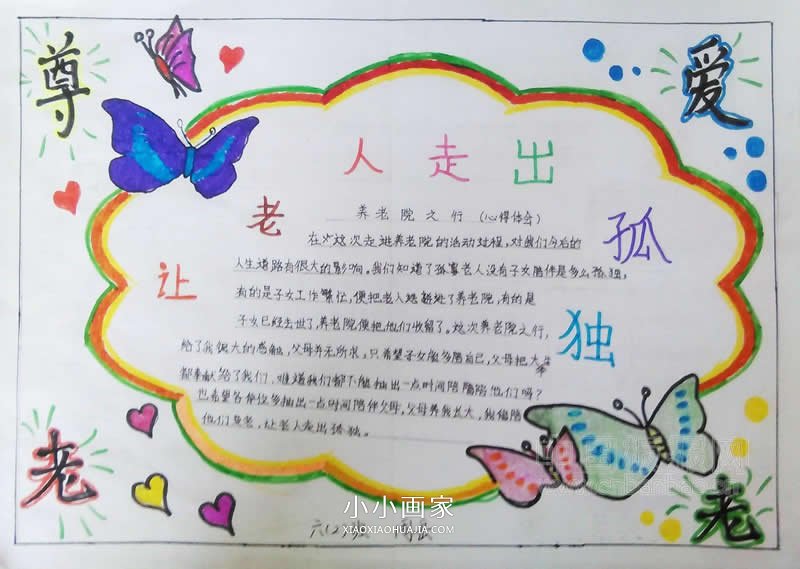 尊 爱
让 老 人 走 出 孤 独
养老院之行（心得体会）
在这次走进养老院的活动过程，对我们今后的
人生道路有很大的影响。我们知道了孤寡老人没有子女陪伴是多么孤独，
有的是子女工作繁忙，便把老人送进了养老院，有的是
子女已经去世了，养老院便把他们收留了。这次养老院之行，
给了我很大的感触，父母并无所求，只希望子女能多陪自己，父母把大半
都奉献给了我们，难道我们都不能抽出一点时间陪陪他们吗？
也希望各位多抽出一点时间陪伴父母，父母养我长大，我陪
他们变老，让老人走出孤独。
老 老
小小画家
XIAOXIAOHUAJIA.COM
六(2)班